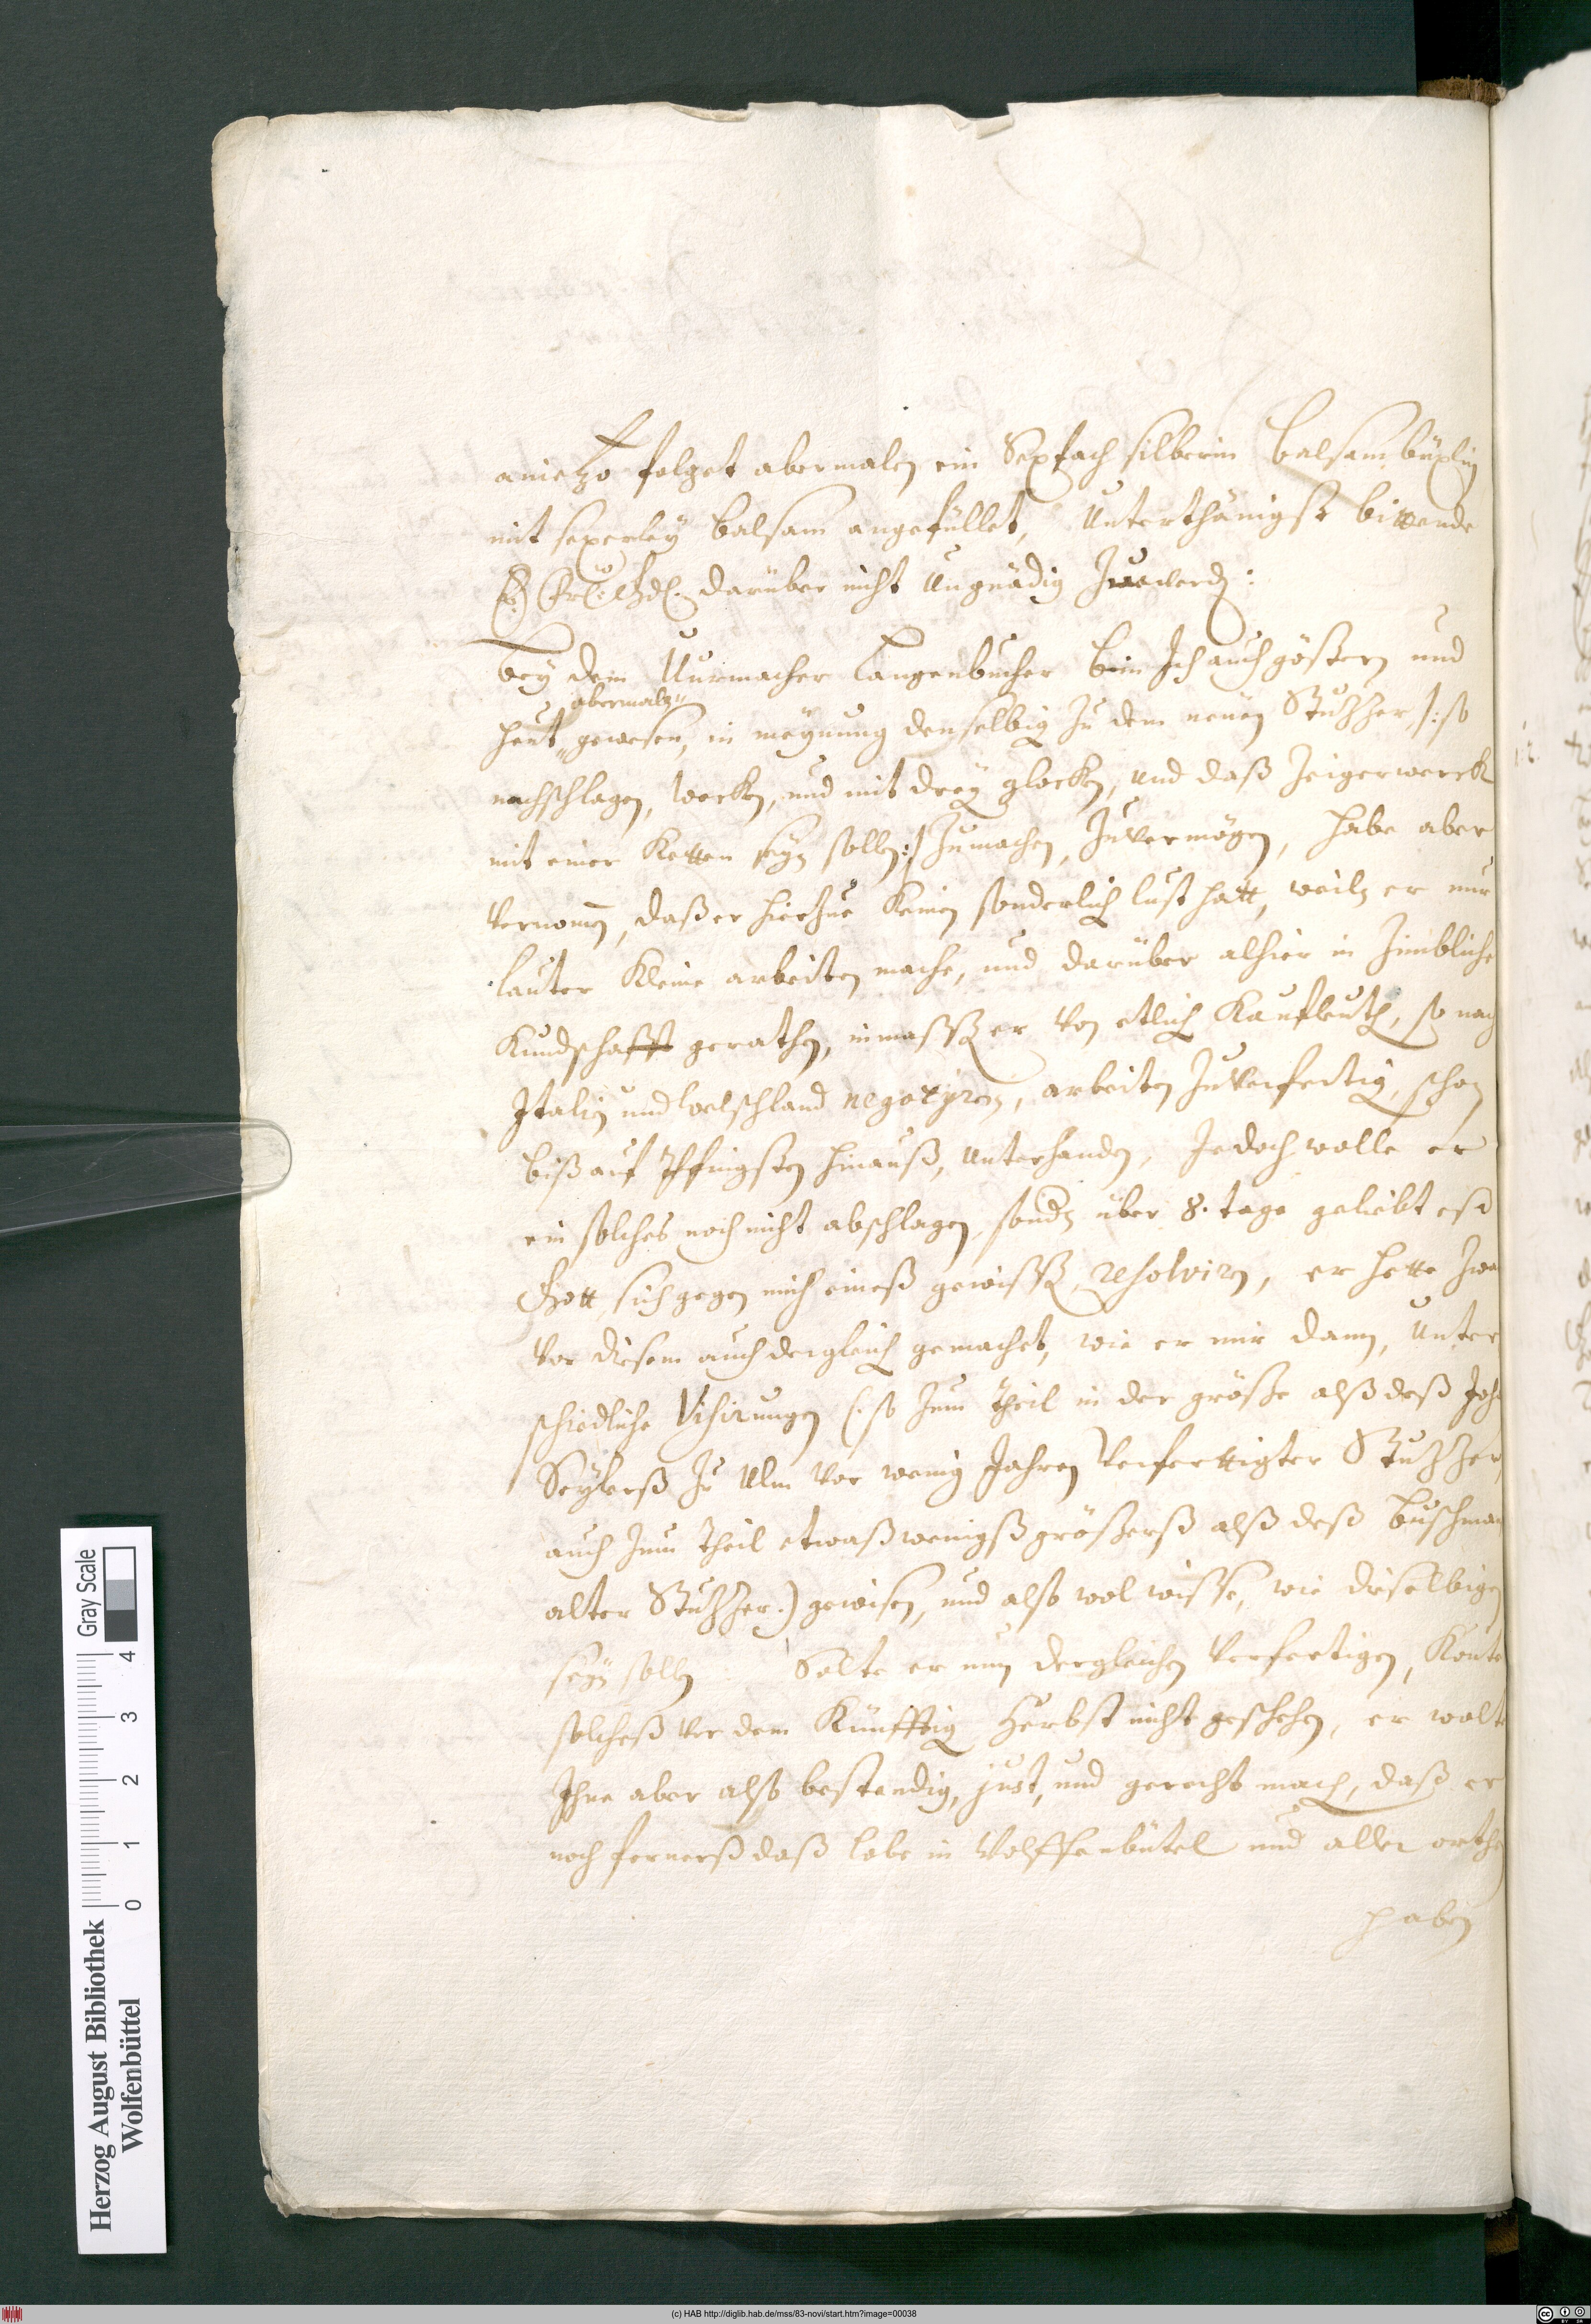 anietzo folget abermalen ein Sexfach silberin balsam büxlin
mit sexerley balsam angefüllet, Unterthänigst bittende
E. Frl: Gdl. darüber nicht Ungnädig Zuewerden:
bey dem Uurmacher Langenbucher bin Ich auch göstern und
abermalß
heut gewesen, in maynung denselbigen Zu dem neuen Stutzer, /:so
nachschlagen, wecken, und mit drey glocken, und daß Zeigerwerck
mit einer Ketten seyn sollen:/ Zumachen, Zuvermögen, habe aber
vernomen, daß er hierzue Keinen sonderlich lust hatt, weiln er nur
lauter Kleine arbeiten mache, und darüber alhier in Zimbliche
Kundschafft gerathen, inmassen er von etlichen Kaufleuthen, so nach
Italien und Welschland negoxyren, arbeiten Zuverfertigen, schon
biß auf Pfingsten hinauß, Unterhanden, Jedoch wolle er
ein solches noch nicht abschlagen, sondern über 8. tage geliebt es
Gott sich gegen mich eineß gewissen resolviren, er hette Zwar
vor diesem auch dergleichen gemachet, wie er mir dann, Unter
schiedliche Visirungen (:so Zum theil in der größe alß deß Joh:
Seylerß Zu Ulm vor wenig Jahren verferttigter Stutzer,
auch Zum theil etwaß wenigß größerß alß deß Buschman
alter Stutzer:) gewisen, und also wol wisse, wie dieselbigen
seyn sollen Solte er nun dergleichen verfertigen, Könte
solcheß vor dem Künfftigen Herbst nicht geschehen, er wolte
Ihne aber also bestendig, just, und gerecht machen, daß er
noch fernerß daß lobe in Wolffenbütel und aller orthen
haben
Herzog August Bibliothek
Wolfenbüttel
0 1 2 3 4
Gray Scale
(c) HAB http://diglib.hab.de/mss/83-novi/start.htm?image=00038